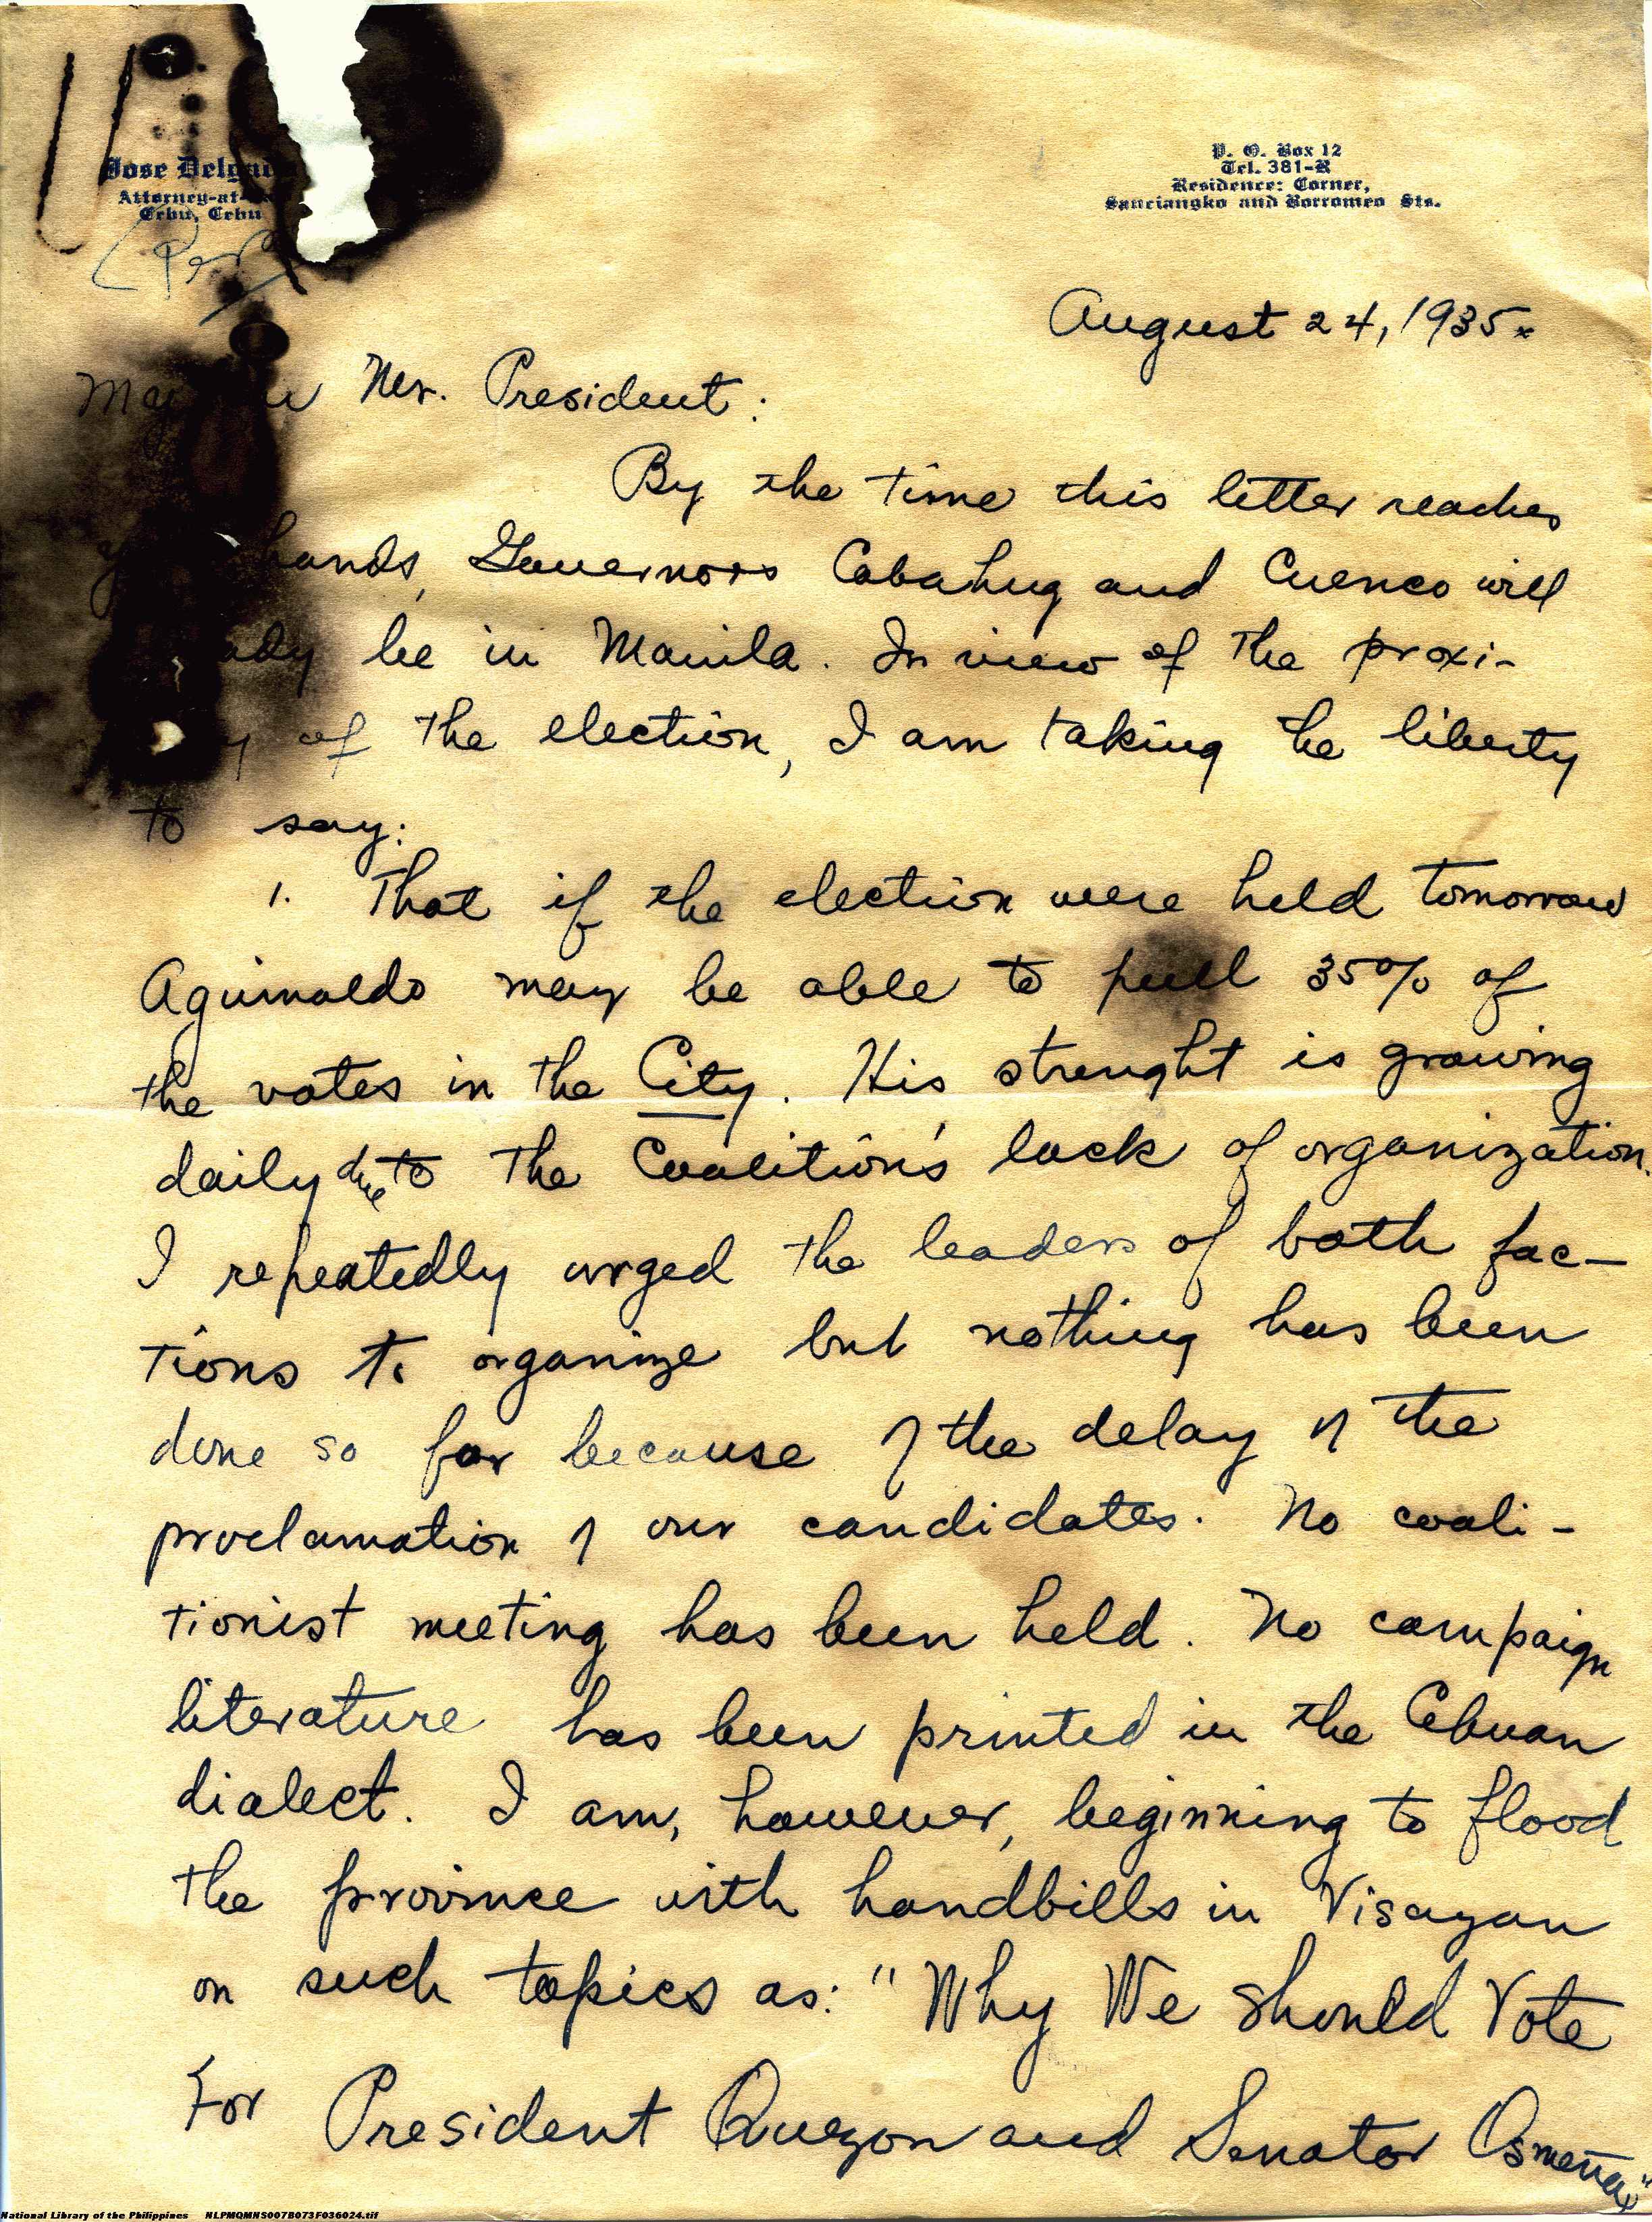 Jose
Attorney-at-
Cebu, Cebu
P. O. Box 12
Tel. 381-R
Residence: Corner,
Sanciangko and Borromeo Sts.
August 24, 1935.
My Mr. President:
By the time this letter reaches
hands, Governors Cabahug and Cuenco will
be in Manila. In view of the proxi-
of the election, I am taking the liberty
to say:
1. That if the election were held tomorrow
Aguinaldo may be able to pull 35% of
the votes in the City. His strenght is growing
daily due to the Coalition's lack of organization.
I repeatedly urged the leaders of both fac-
tions to organize but nothing has been
done so far because of the delay of the
proclamation of our candidates. No coali-
tionist meeting has been held. No campaign
literature has been printed in the Cebuan
dialect. I am, however, beginning to flood
the province with handbills in Visayan
on such topics as: "Why We Should Vote
For President Quezon and Senator Osmeña"
National Library of the Philippines NLPMQMNS007B073F036024.tif